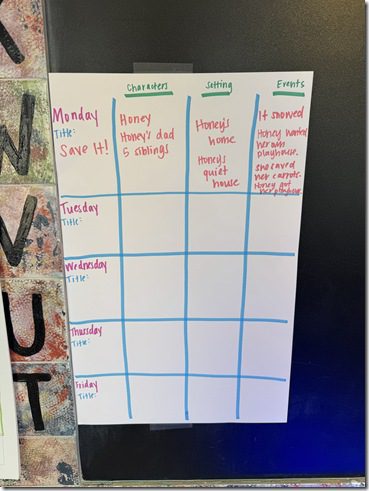 Characters Setting Events
Monday
Title:
Save It!
Honey
Honey's dad
5 siblings
Honey's
home
Honey's
quiet
house
It snowed
Honey wanted
her own
playhouse.
She saved
her carrots.
Honey got
her playhouse.
Tuesday
Title:
Wednesday
Title:
Thursday
Title:
Friday
Title: